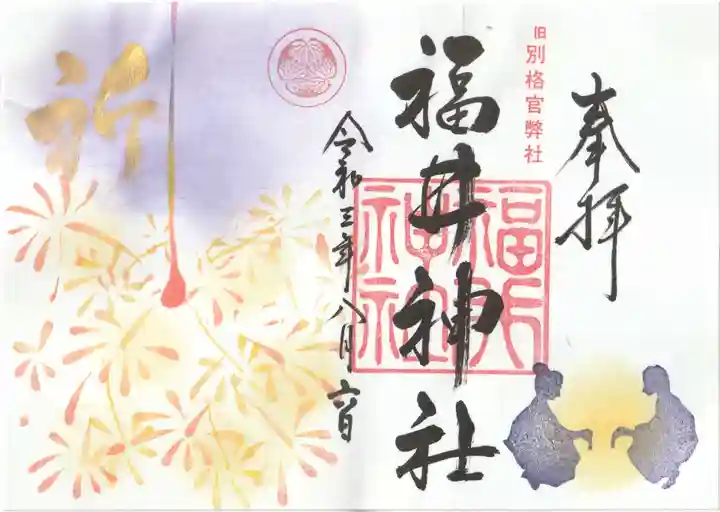 奉拝
旧
別格官弊社
福井神社
福井神社
令和三年八月六日
祈